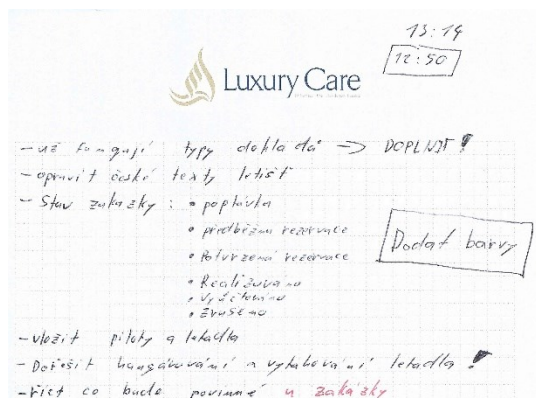 13:14
12:50
Luxury Care
- už fungují typy dokladů -> DOPLNIT!
- opravit české texty letišť
- Stav zakázky :
• poptávka
• předběžná rezervace
• Potvrzená rezervace
• Realizováno
• Vyúčtováno
• Zrušeno
Dodat barvy
- vložit piloty a letadla
- Dořešit hangárování a vytahování letadla!
- říct co bude povinné u zakázky